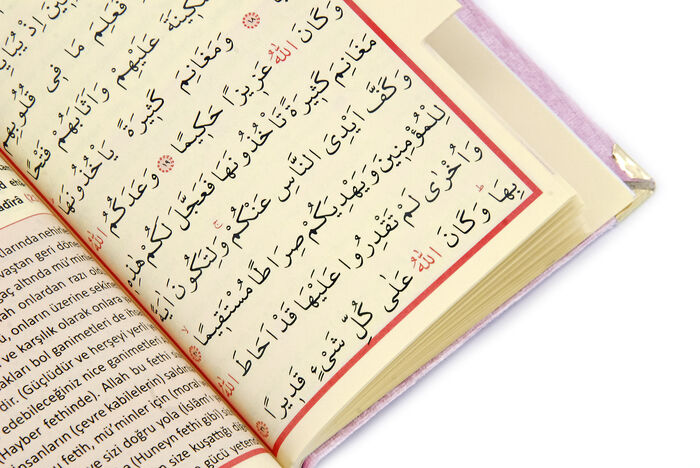 اِذْ يُبَايِ
فَعَلِمَ مَا فٖي قُلُوبِهِمْ
سَّكٖينَةَ عَلَيْهِمْ وَاَثَابَهُمْ فَتْحًا
١٨ وَمَغَانِمَ كَثٖيرَةً يَأْخُذُونَهَا
وَكَانَ اللّٰهُ عَزٖيزًا حَكٖيمًا ١٩ وَعَدَكُمُ اللّٰهُ
مَغَانِمَ كَثٖيرَةً تَأْخُذُونَهَا فَعَجَّلَ لَكُمْ هٰذِهٖ
وَكَفَّ اَيْدِيَ النَّاسِ عَنْكُمْۚ وَلِتَكُونَ اٰيَةً
لِلْمُؤْمِنٖينَ وَيَهْدِيَكُمْ صِرَاطًا مُسْتَقٖيمًاۙ ٢٠
وَاُخْرٰى لَمْ تَقْدِرُوا عَلَيْهَا قَدْ اَحَاطَ اللّٰهُ
بِهَاؕ وَكَانَ اللّٰهُ عَلٰى كُلِّ شَيْءٍ قَدٖيرًا ٢١
larında nehin
vaştan geri döne
ğaç altında mü'min
ah onlardan razı olm
ü, onların üzerine sekine
ve karşılık olarak onlara
akları bol ganimetleri de ih
dir. (Güçlüdür ve herşeyi yerli
edebileceğiniz nice ganimetler
(Hayber fethinde). Allah bu fethi
insanların (çevre kabilelerin) saldırı
bu fetih, mü'minler için (moral
ve sizi doğru yola (İslâm'
a (Huneyn fethi gibi) s
en size kuşattığı di
a gücü yetend